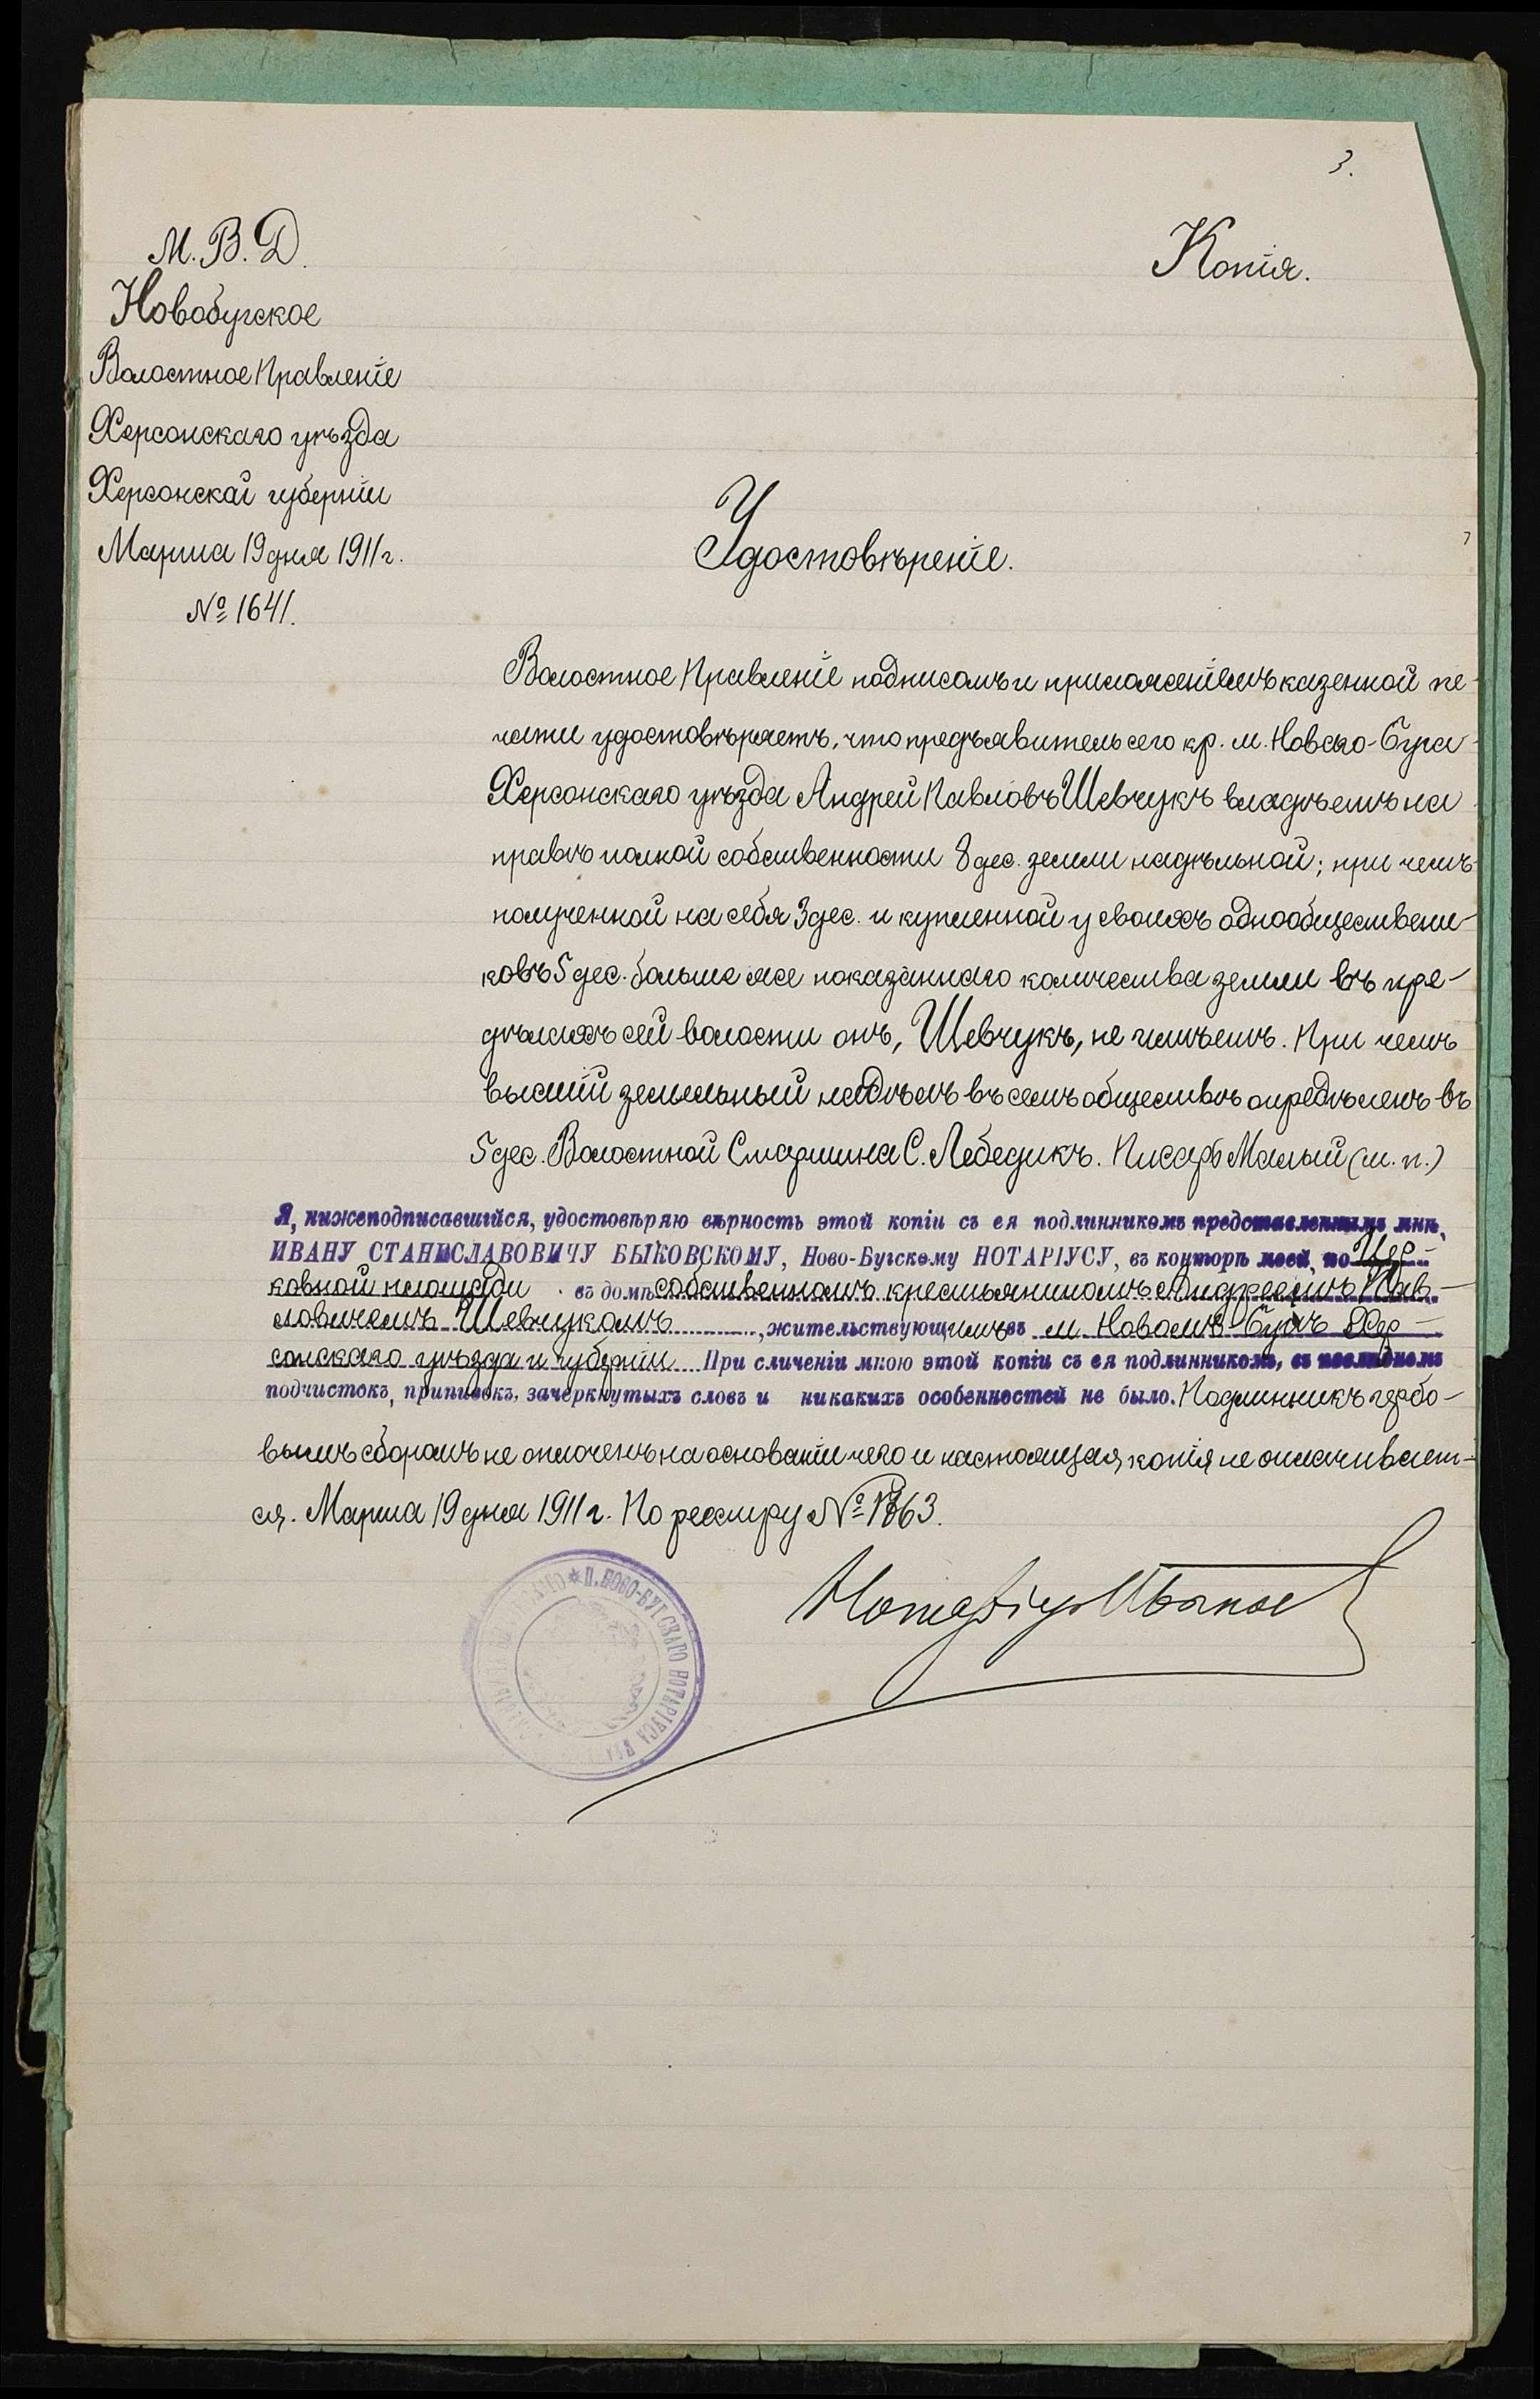 3.
М. В. Д.
Новобугское
Волостное Правленіе
Херсонскаго уѣзда
Херсонскаі губерніи
Марта 19 дня 1911 г.
№ 1641.
Копія.
Удостовѣреніе.
Волостное Правленіе подписомъ и приложеніемъ казенной пе-
чати удостовѣряетъ, что предъявитель сего кр. м. Новаго-Буга
Херсонскаго уѣзда Андрей Павловъ Шевчукъ владѣетъ на
правѣ полной собственности 8 дес. земли надѣльной; при чемъ
полученной на себя 3 дес. и купленной у своихъ однообществени-
ковъ 5 дес. больше же показаннаго количества земли въ пре-
дѣлахъ сей волости онъ, Шевчукъ, не имѣетъ. При чемъ
высшій земельный надѣлъ въ семъ обществѣ опредѣленъ въ
5 дес. Волостной Старшина С. Лебедикъ. Писарь Малый (м. п.)
Я, нижеподписавшійся, удостовѣряю вѣрность этой копіи съ ея подлинникомъ представленнымъ мнѣ,
ИВАНУ СТАНИСЛАВОВИЧУ БЫКОВСКОМУ, Ново-Бугскому НОТАРІУСУ, въ конторѣ моей, по Цер-
ковной площади въ домѣ собственномъ крестьяниномъ Андреемъ Пав-
ловичемъ Шевчукомъ, жительствующимъ въ м. Новомъ-Бугѣ Хер-
сонскаго уѣзда и губерніи При сличеніи мною этой копіи съ ея подлинникомъ, въ послѣднемъ
подчистокъ, приписокъ, зачеркнутыхъ словъ и никакихъ особенностей не было. Подлинникъ гербо-
вымъ сборомъ не оплоченъ на основаніи чего и настоящая копія не оплачивает-
ся. Марта 19 дня 1911 г. По реестру № 1363.
Нотаріусъ
П. НОВО-БУГСКАГО НОТАРІУСА